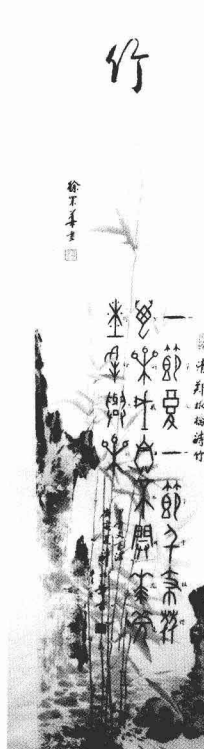 竹
清郑板橋詩竹
一節复一節千枝攢
萬葉我自不開花免
撩蜂與蝶